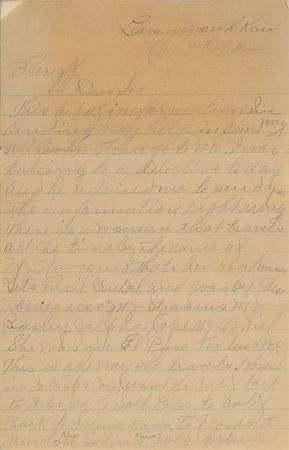 Leavenworth Kan
Sheriff.
Dear Sir
This bit of information I'm
sending may help in some way
things to me, I was
talking to a detective to day
And he advised me to send
the information right away
There is a woman that travels
all the time by the name of
Mrs Newcomb. thats her real name
gets mail and goes by the
names also of Mrs Stearins Mrs
Basley Mrs
She was in El Paso Texas last
This is the way she travels. Home
in Colo Sps Colo, went to Calif back
to Nebr. on to Salt Lake, to Calif
Back to Salina Kans, to Florida to
Newton Kan Salina Kans Colo Springs